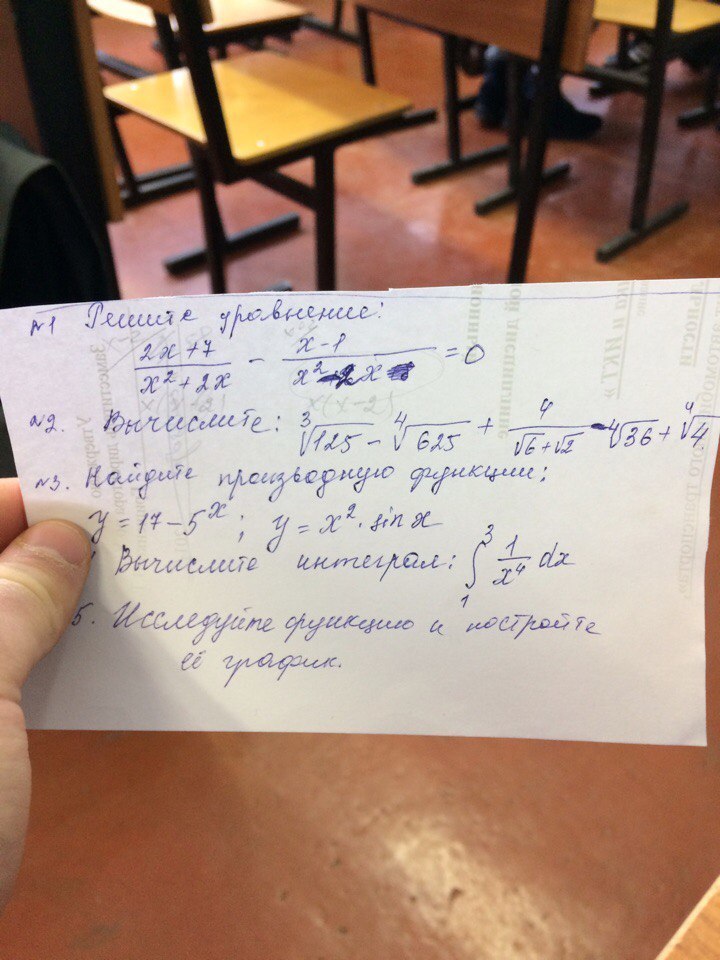 №1 Решите уравнение:
(2x+7)/(x²+2x) - (x-1)/(x² x) = 0
№2. Вычислите: ∛125 - ∜625 + 4/(√6+√2) - ∜36 + ∜4
№3. Найдите производную функции:
y = 17 - 5^x ; y = x² · sin x
Вычислите интеграл: ∫₁³ 1/x⁴ dx
5. Исследуйте функцию и постройте
её график.